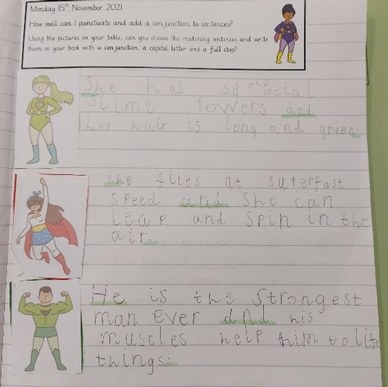 Monday 15th November 2021
How well can I punctuate and add a conjunction to sentences?
Using the pictures on your table, can you choose the matching sentences and write
them in your book with a conjunction, a capital letter and a full stop?
She has special
slime powers and
her hair is long and green
she flies at superfast
speed and she can
leap and spin in the
air.
He is the strongest
man ever and his
muscles help him to lift
things.